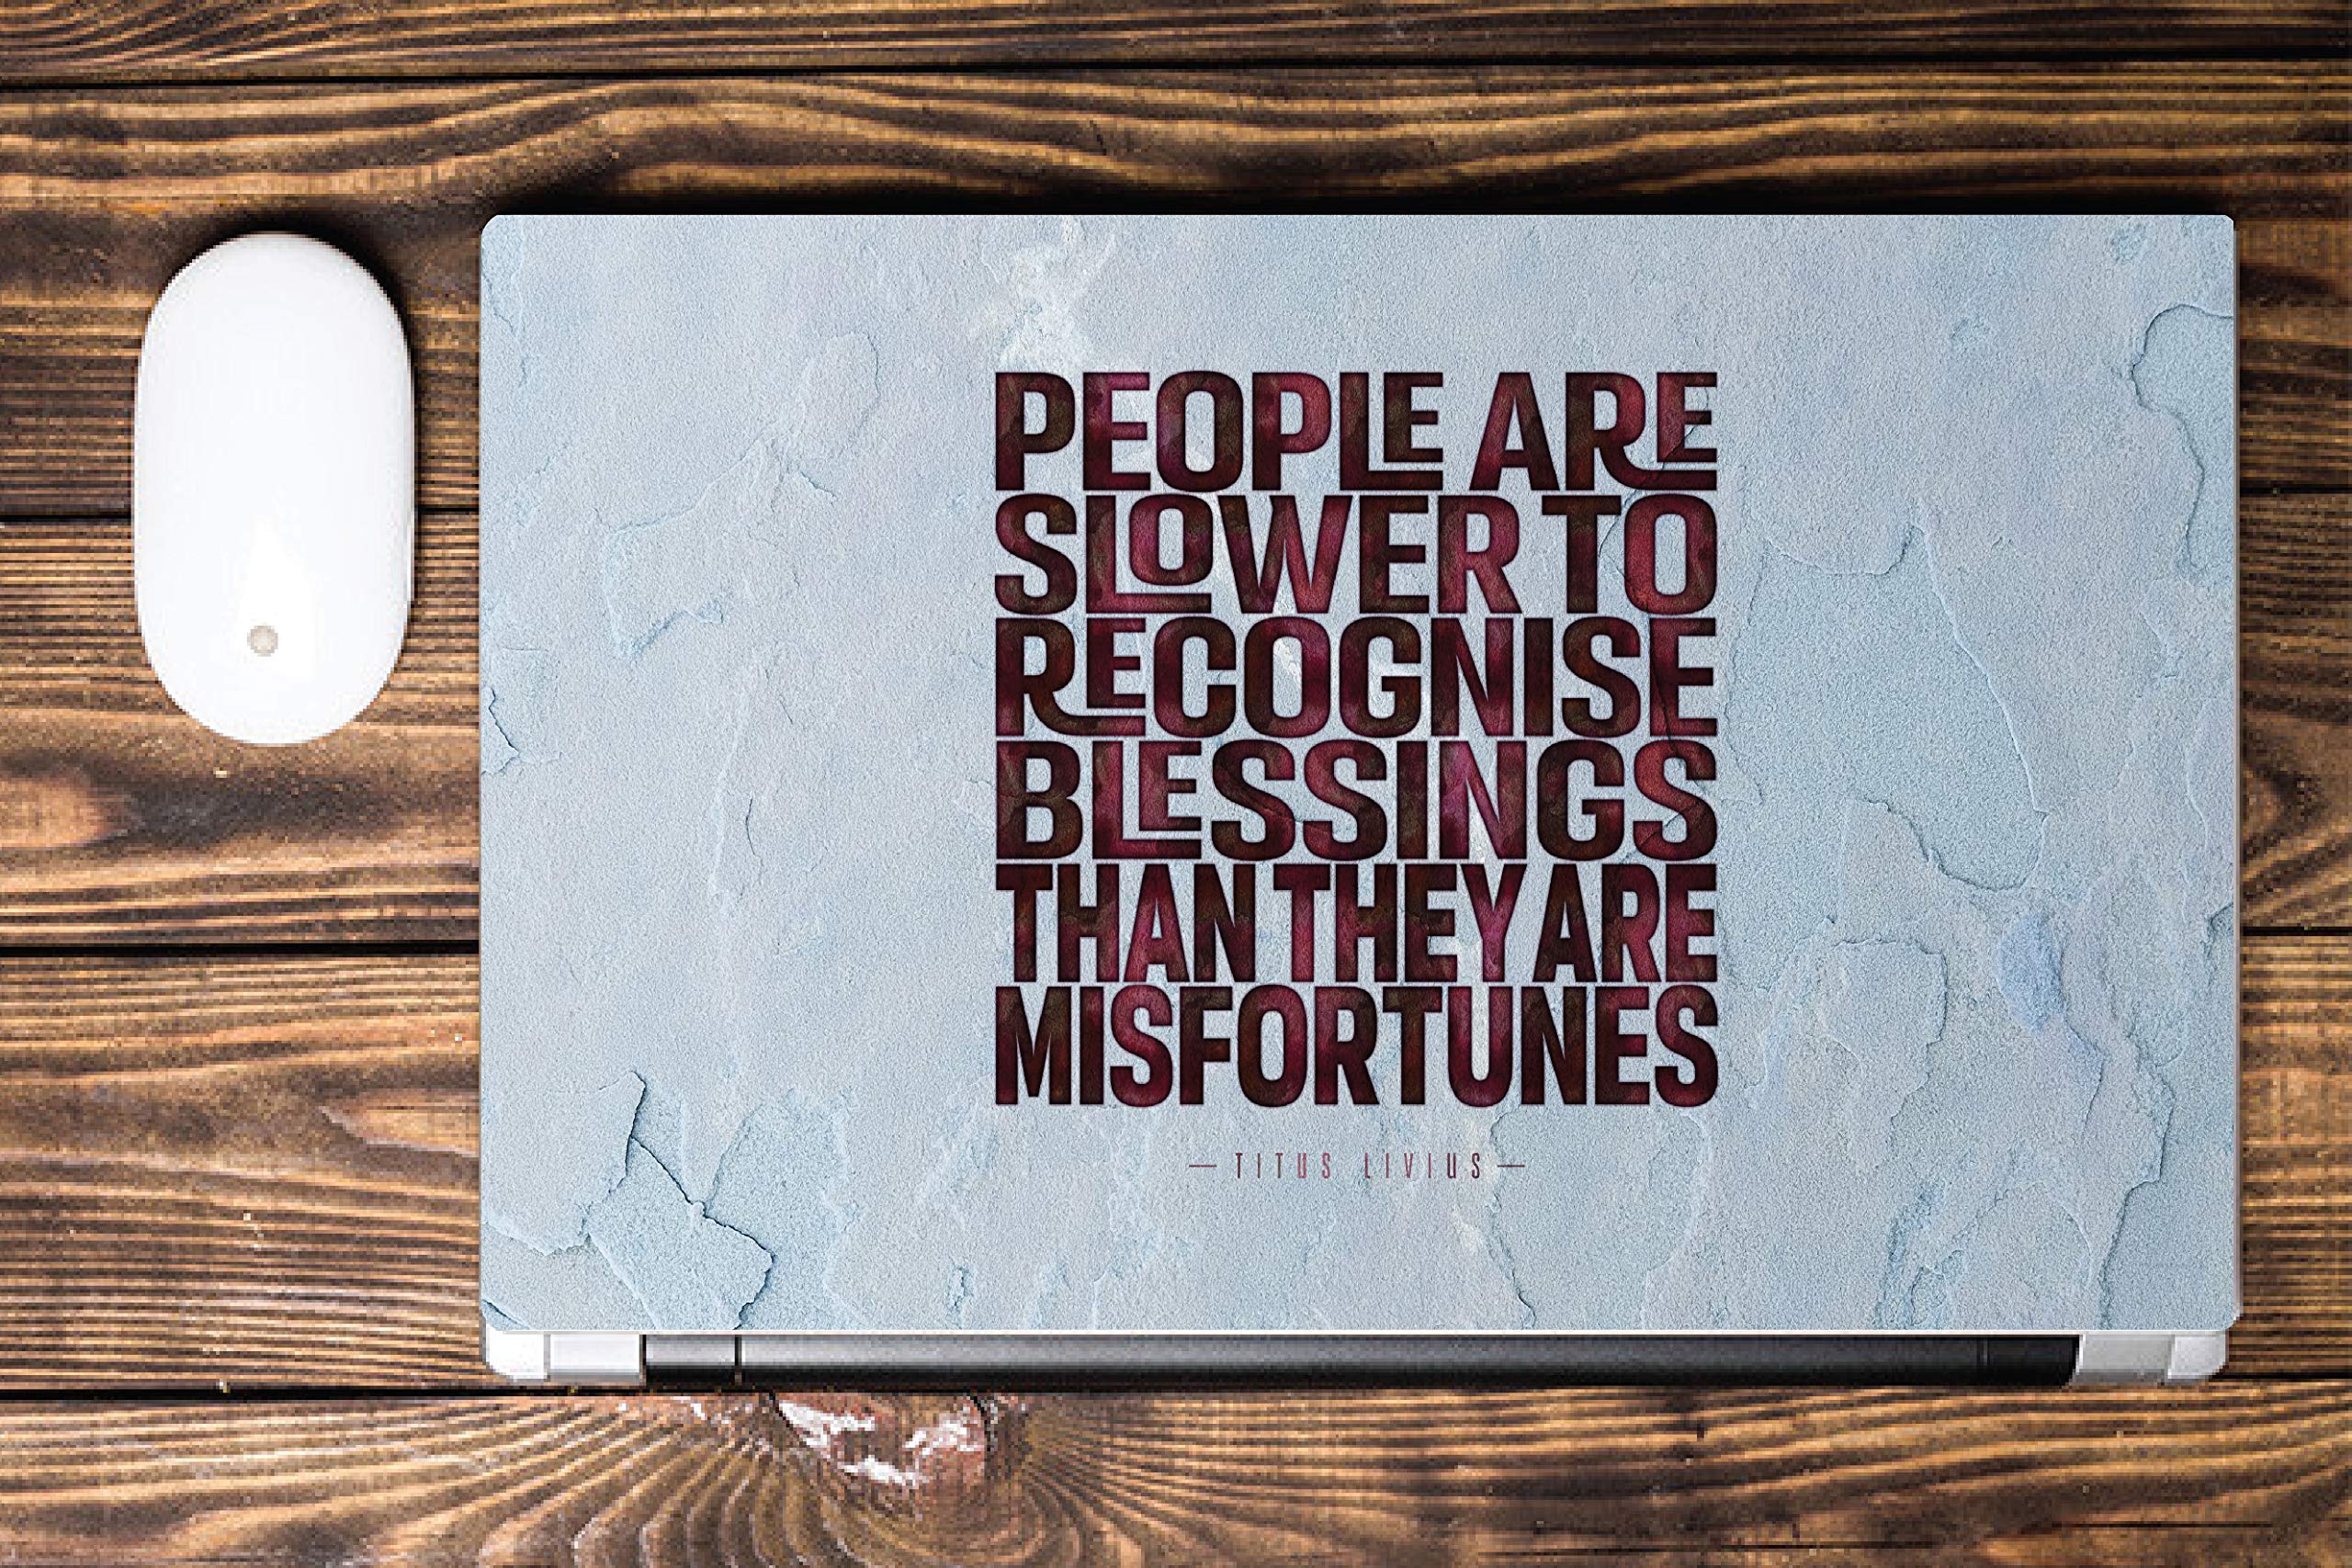 PEOPLE ARE
SLOWER TO
RECOGNISE
BLESSINGS
THAN THEY ARE
MISFORTUNES
— TITUS LIVIUS —